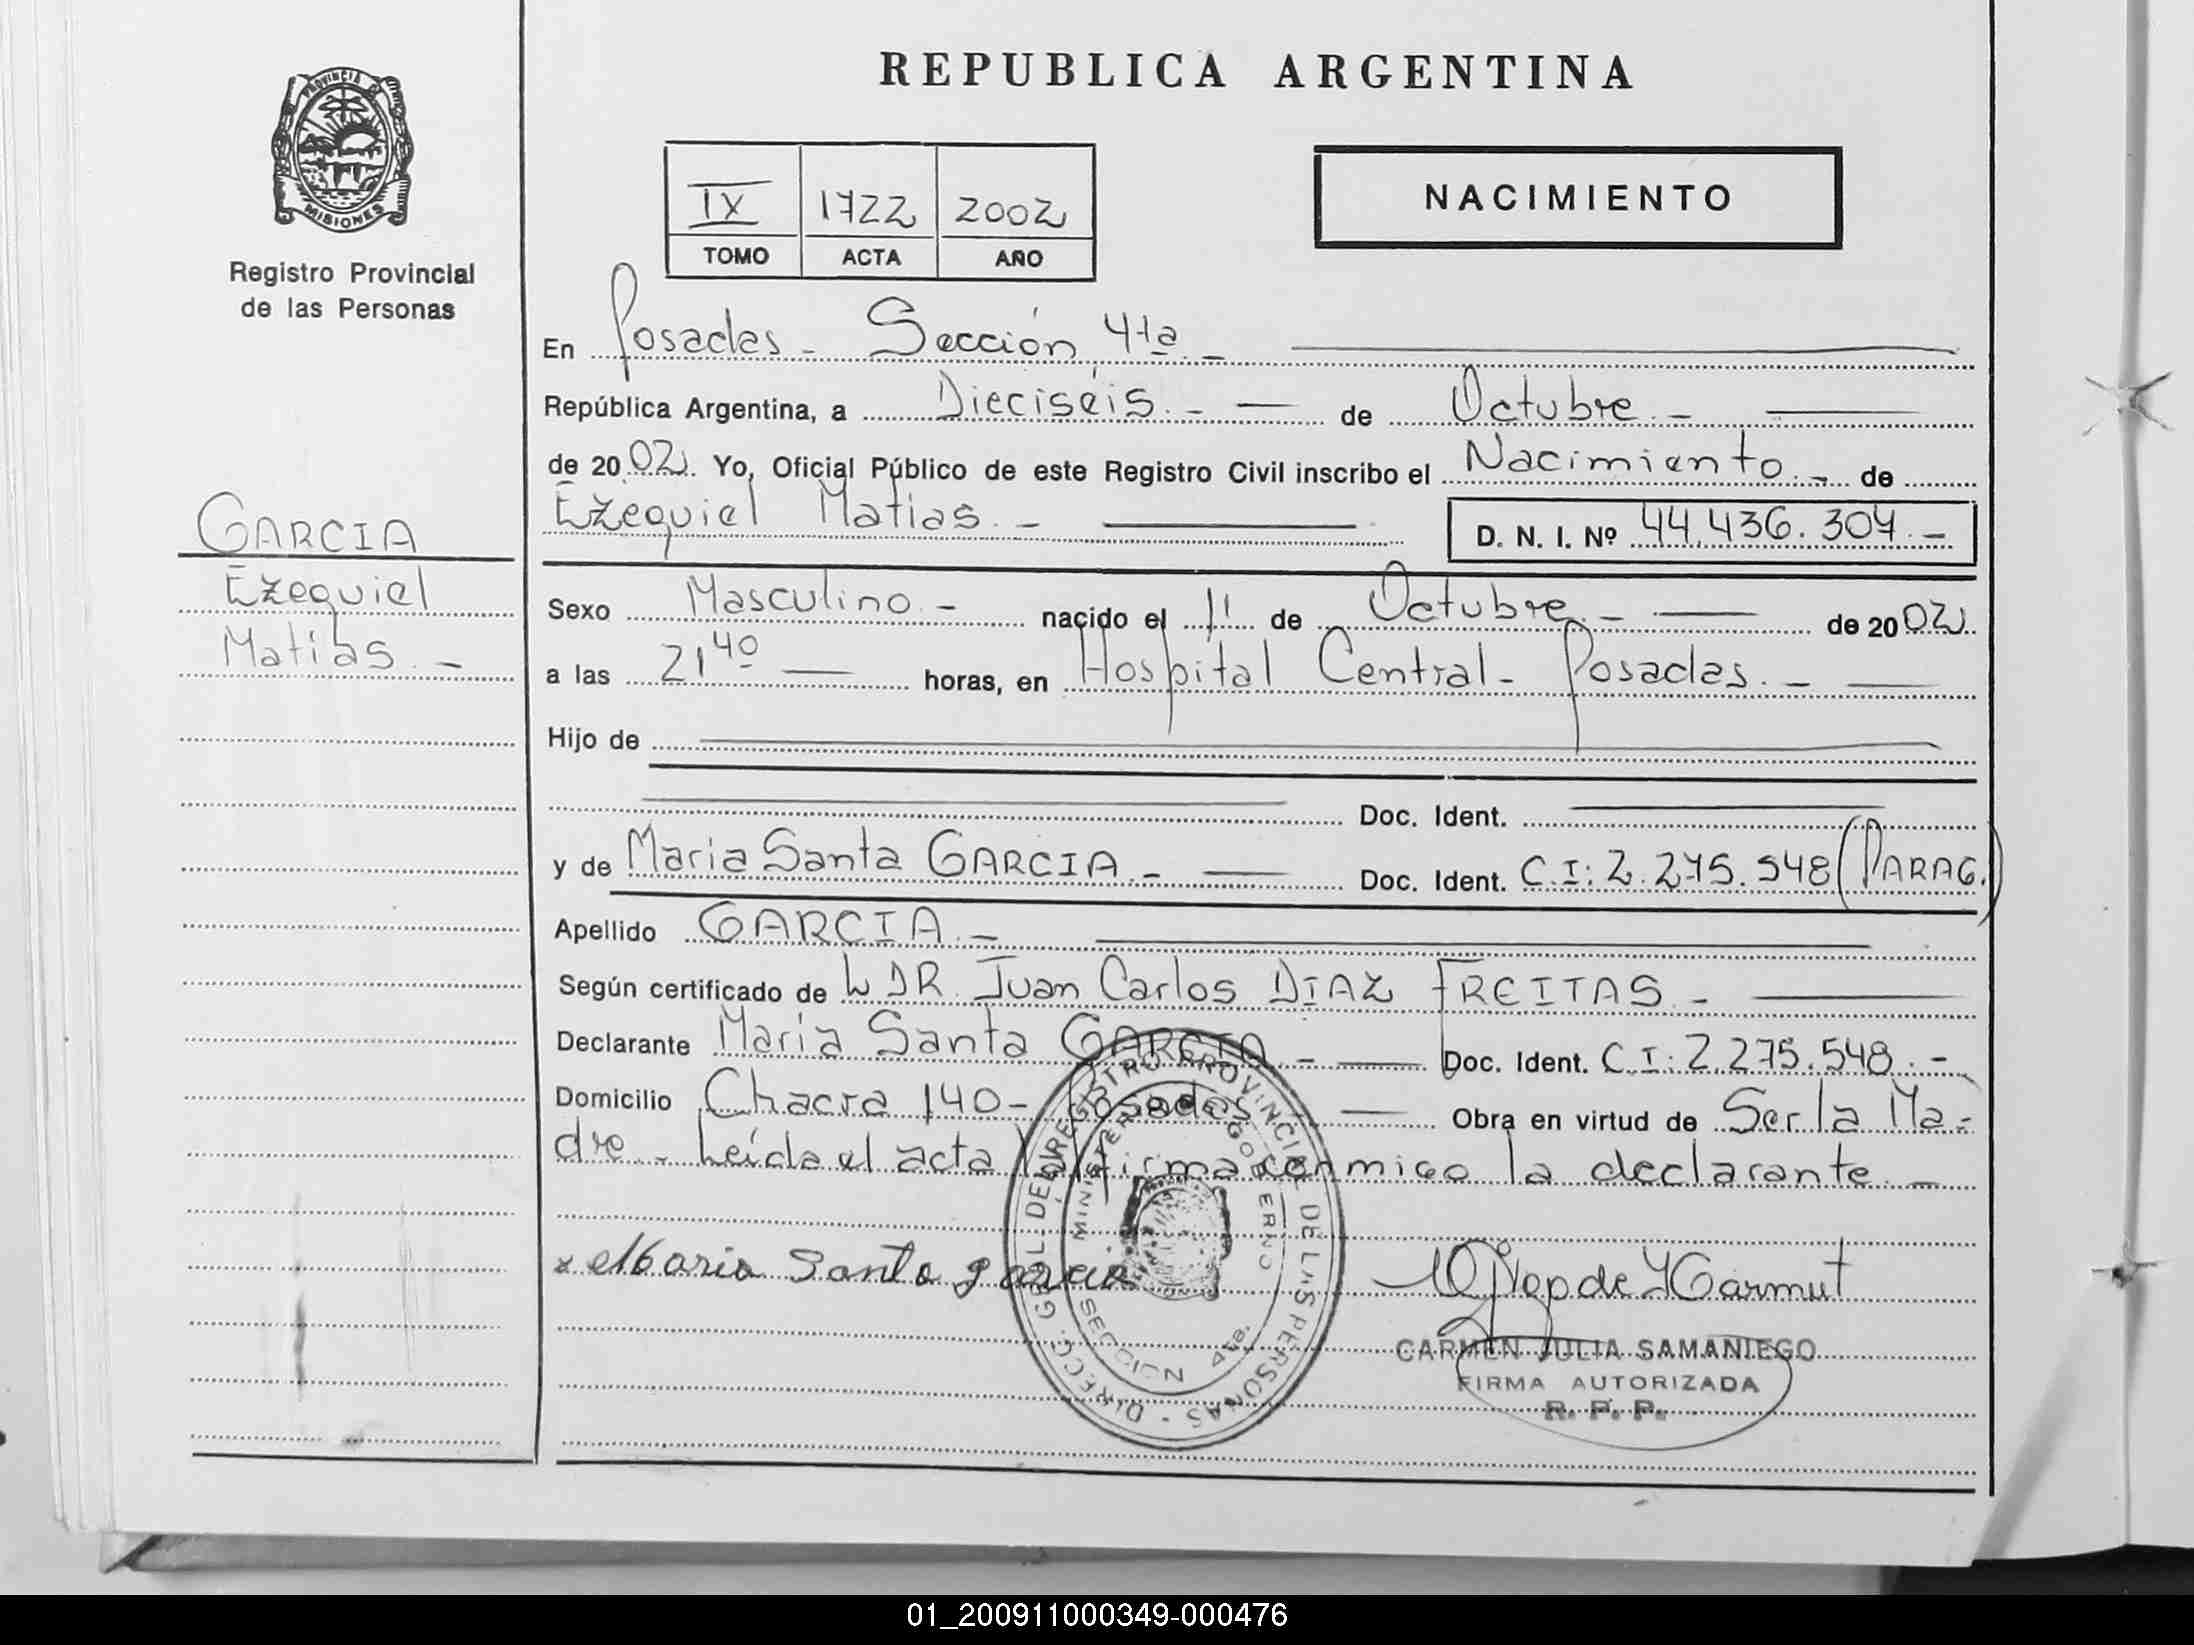 REPUBLICA ARGENTINA
PROVINCIA DE
MISIONES
Registro Provincial
de las Personas
IX 1722 2002
TOMO ACTA AÑO
NACIMIENTO
En Posadas - Sección 4ta. -
República Argentina, a Dieciséis. - de Octubre. -
de 20 02. Yo, Oficial Público de este Registro Civil inscribo el Nacimiento. - de
GARCIA
Ezequiel
Matias. -
Ezequiel Matias. - D. N. I. Nº 44.436.307. -
Sexo Masculino. - nacido el 11 de Octubre. - de 20 02.
a las 21 40 horas, en Hospital Central - Posadas. -
Hijo de
Doc. Ident.
y de Maria Santa GARCIA. - Doc. Ident. C.I: 2.275.548 (PARAG.)
Apellido GARCIA. -
Según certificado de DR. Juan Carlos DIAZ FREITAS. -
Declarante Maria Santa GARCIA. - Doc. Ident. C.I: 2.275.548. -
Domicilio Chacra 140 - Posadas. - Obra en virtud de Ser la Ma-
dre. - Leída el acta la firma conmigo la declarante. -
x Maria Santa garcia
DIRECC. GRAL. DEL REGISTRO PROVINCIAL DE LAS PERSONAS
MINISTERIO DE GOBIERNO
SECCION 4ta.
CARMEN JULIA SAMANIEGO
FIRMA AUTORIZADA
R. P. P.
01_200911000349-000476